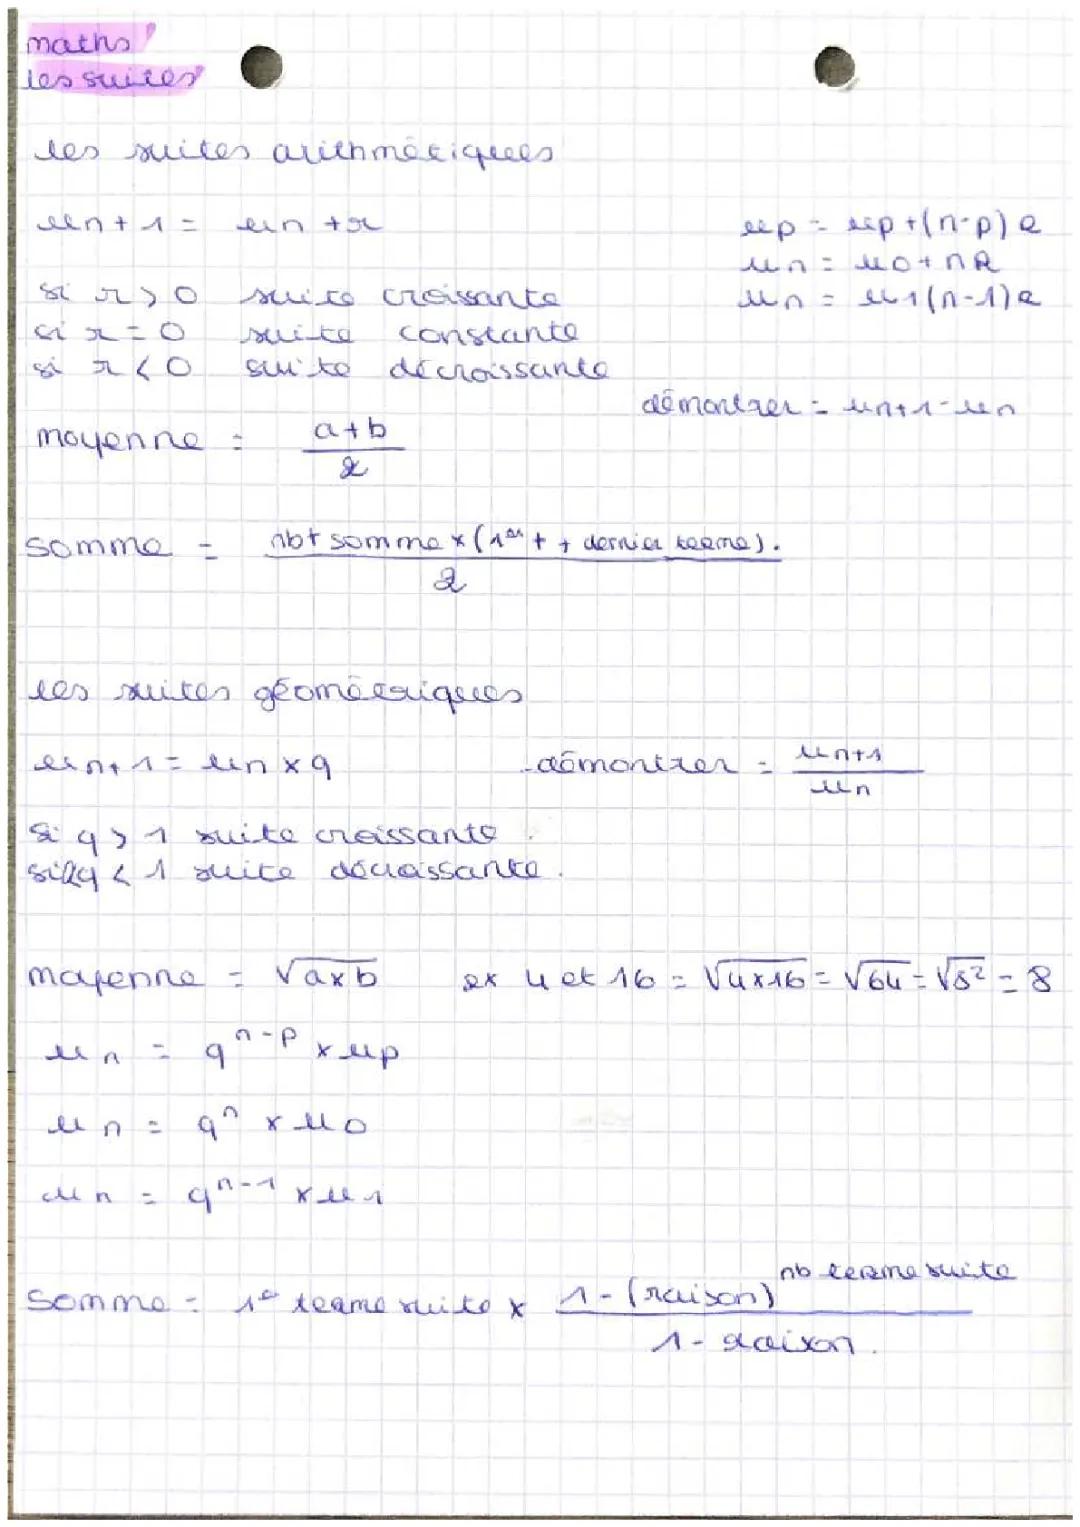 maths
les suites
les suites arithmétiques
un+1 = un +r
up = up+(n-p)R
un = u0+nR
si r>0 suite croissante
un = u1(n-1)R
si r=0 suite constante
si r<0 suite décroissante
démontrer = un+1-un
moyenne = a+b
2
somme = nbt somme x (1er t + dernier terme).
2
les suites géométriques
un+1 = un x q
démontrer = un+1
un
si q > 1 suite croissante
si q < 1 suite décroissante.
moyenne = √axb ex 4 et 16 = √4x16 = √64 = √8² = 8
un = qⁿ⁻ᵖ x up
un = qⁿ x u0
un = qⁿ⁻¹ x u1
nb terme suite
somme = 1e terme suite x 1-(raison)
1- raison.